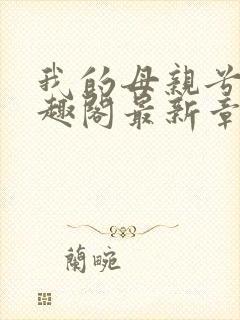 我的母親
趣閣最新章
蘭畹